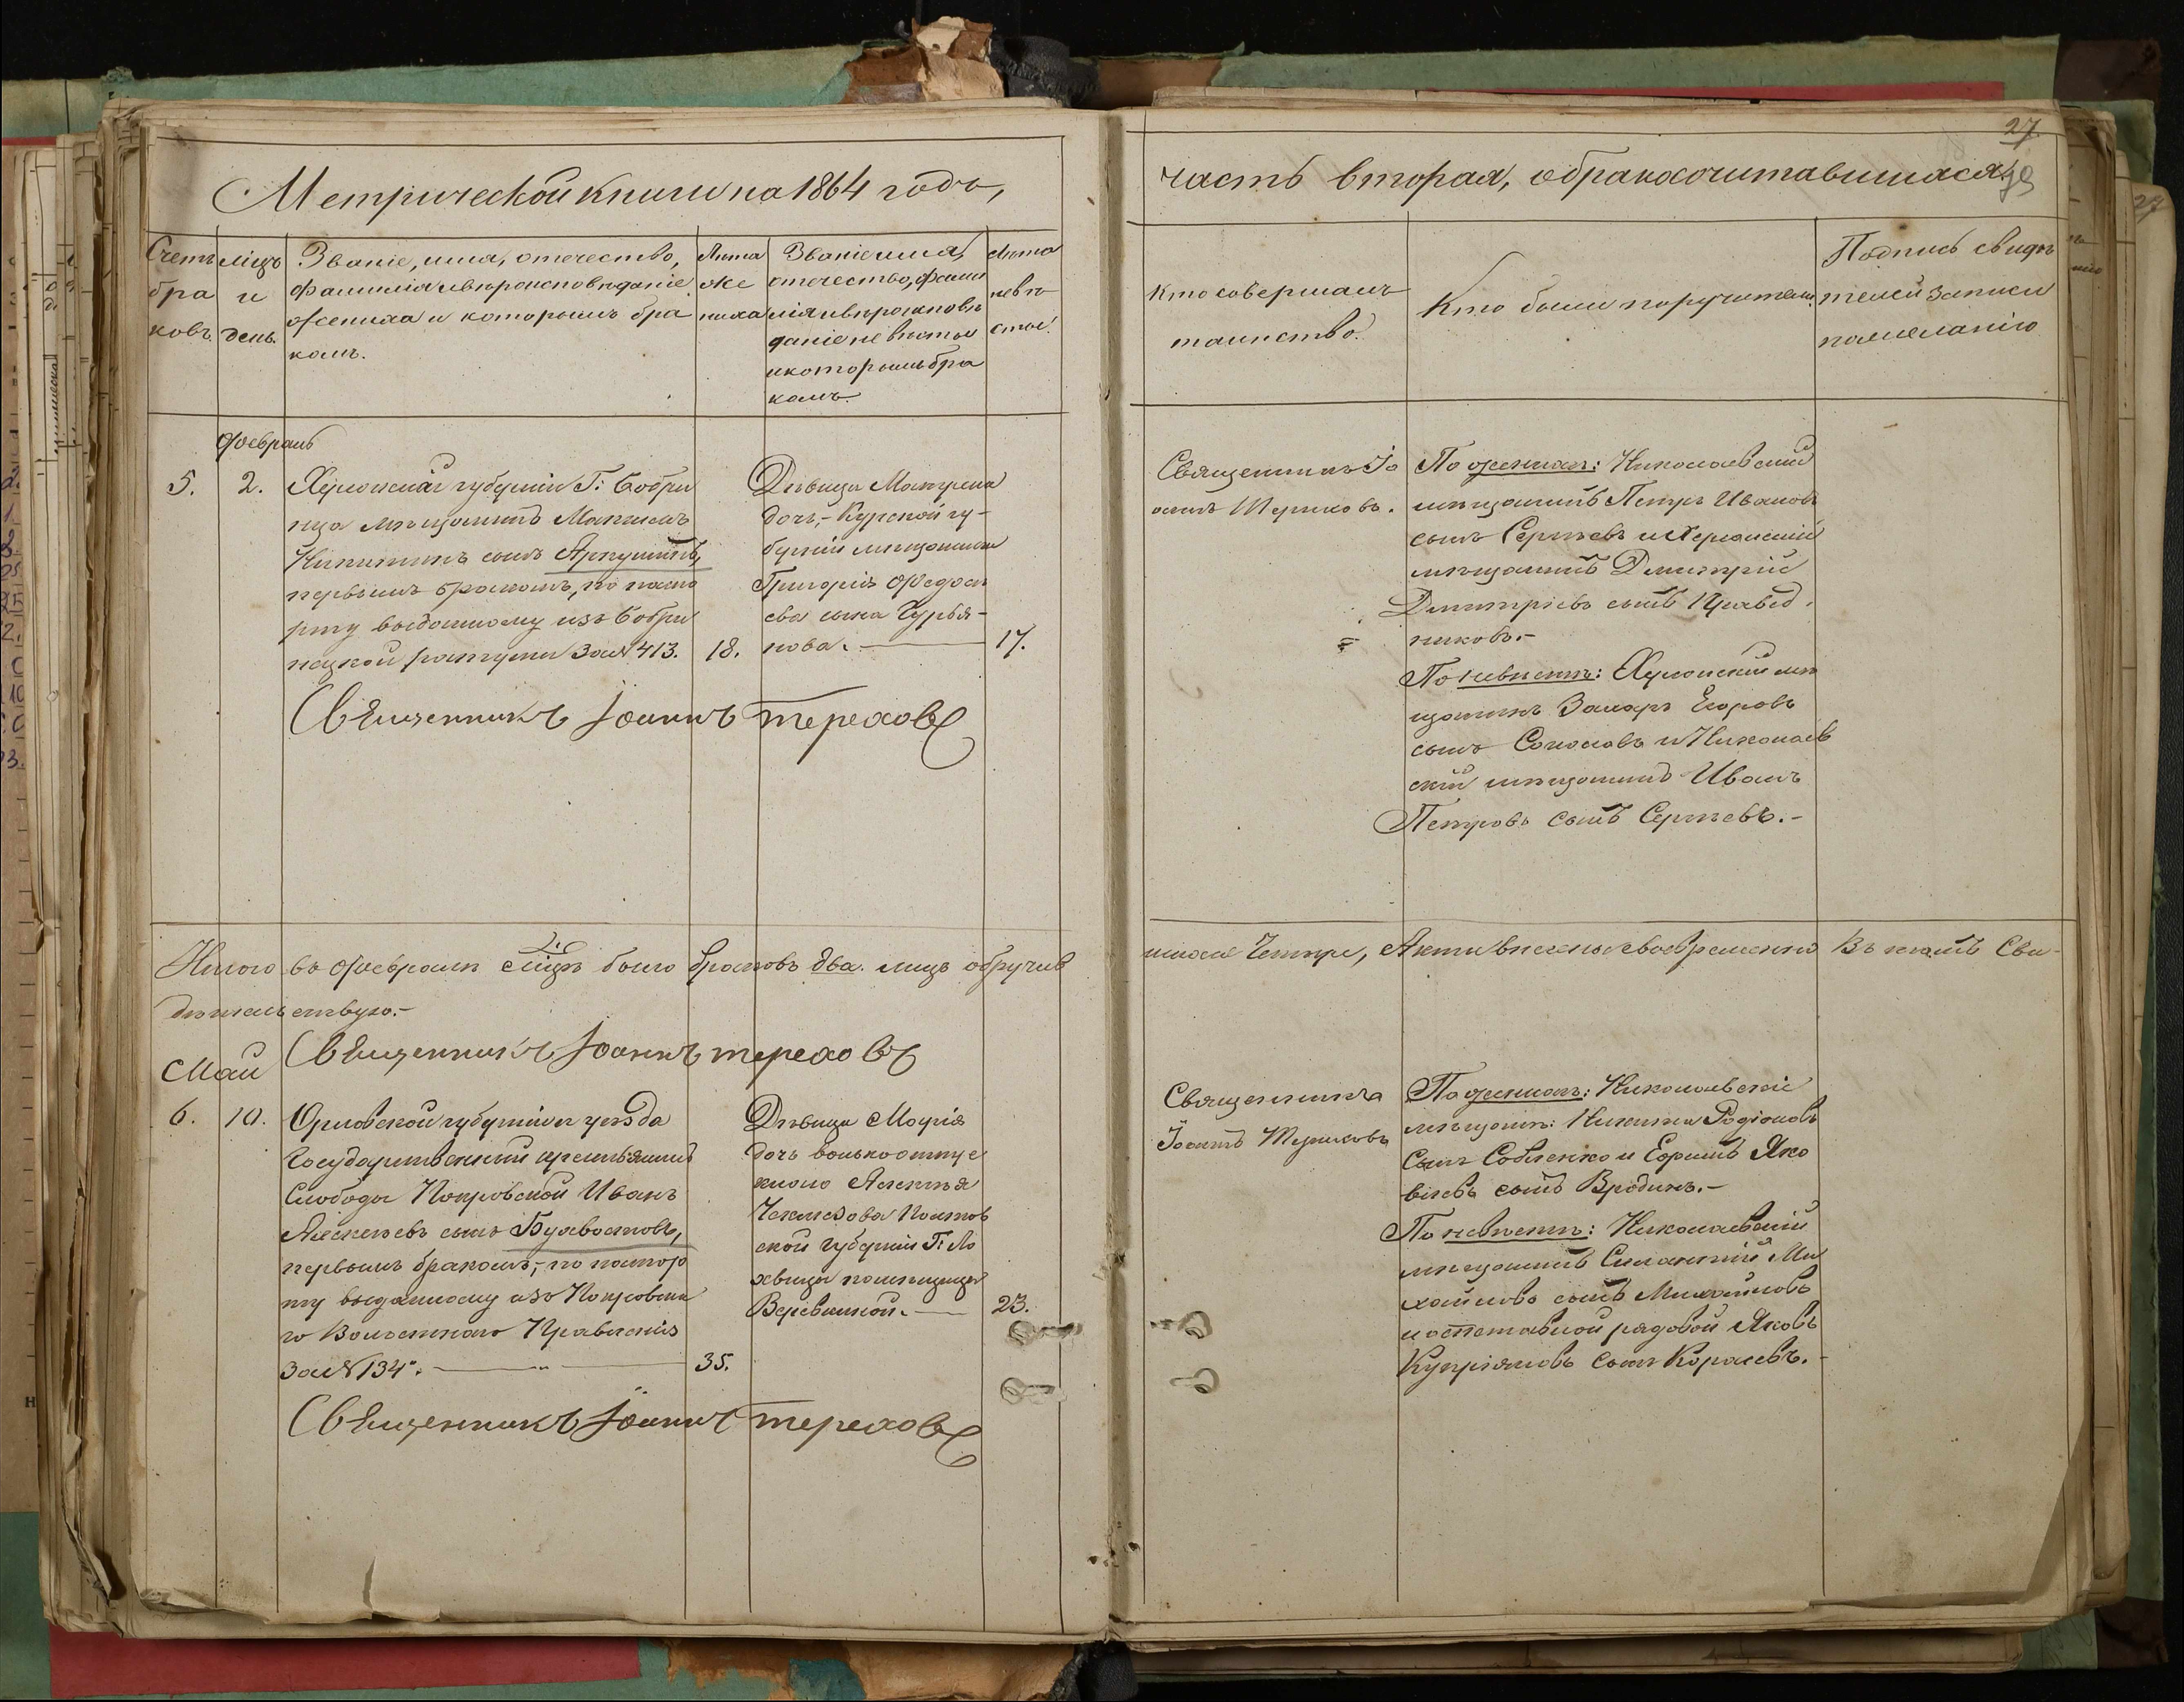 27
Метрической книги на 1864 годъ,
часть вторая, о бракосочитавшихся.
Счетъ
бра
ковъ.
мѣцъ
и
день.
Званіе, имя, отечество,
фамилія и вѣроисповѣданіе
жениха и которымъ бра
комъ.
Лѣта
же
ниха
Званіе имя,
отечество, фами
лія и вѣроисповѣ
даніе невѣсты
и которымъ бра
комъ.
Лѣта
невѣ
сты.
Кто совершалъ
таинство.
Кто были поручители.
Подпись свидѣ
телей записи
по желанію
Февраль
5.
2.
Херсонской губерніи Г: Бобри
нца мѣщанинъ Максимъ
Никитинъ сынъ
первымъ бракомъ, по паспо
рту выданному изъ Бобри
нецкой ратуши За № 413.
18.
Дѣвица Матрена
дочь,- Курской гу-
берніи мѣщанина
Григорія Федосѣ
ева сына
нова.
17.
Священникъ Іо
аннъ Тереховъ.
По женихѣ: Николаевский
мѣщанинъ Петръ Ивановъ
сынъ Сергѣевъ и Херсонский
мѣщанинъ Дмитрій
Дмитріевъ сынъ Правед
никовъ.-
По невѣстѣ: Херсонский мѣ
щанинъ Захаръ Егоровъ
сынъ Соколовъ и Николаев
ский мѣщанинъ Иванъ
Петровъ сынъ Сергѣевъ.-
Священникъ Іоаннъ Тереховъ
Итого въ Февралѣ мѣцѣ было браковъ два. лицъ обручив
шихся Четыре, Акты внесены своевременно В чемъ Сви-
дѣтельствую.-
Священникъ Іоаннъ Тереховъ
Май
6.
10.
Орловской губерніи и уѣзда
Государственный крестьянинъ
Слободы Покровской Иванъ
Алексѣевъ сынъ Бухвостовъ,
первымъ бракомъ,- по паспор
ту выданному изъ Покровска
го Волостнаго Правленія
За № 134.
35.
Дѣвица Марія
дочь вольноотпуще
ннаго Алексѣя
Полтав
ской губерніи Г: Ло
хвицы помѣщицы
23.
Священникъ
Іоаннъ Тереховъ
По женихѣ: Николаевскіе
мѣщане: Никита Родіоновъ
Сынъ Савленко и Ефимъ Яко
влевъ сынъ Бродинъ.-
По невѣстѣ: Николаевский
мѣщанинъ Силантий Ми
хайловъ сынъ Михайловъ
и отставной рядовой Яковъ
Купріяновъ сынъ Королевъ.-
Священникъ Іоаннъ Тереховъ